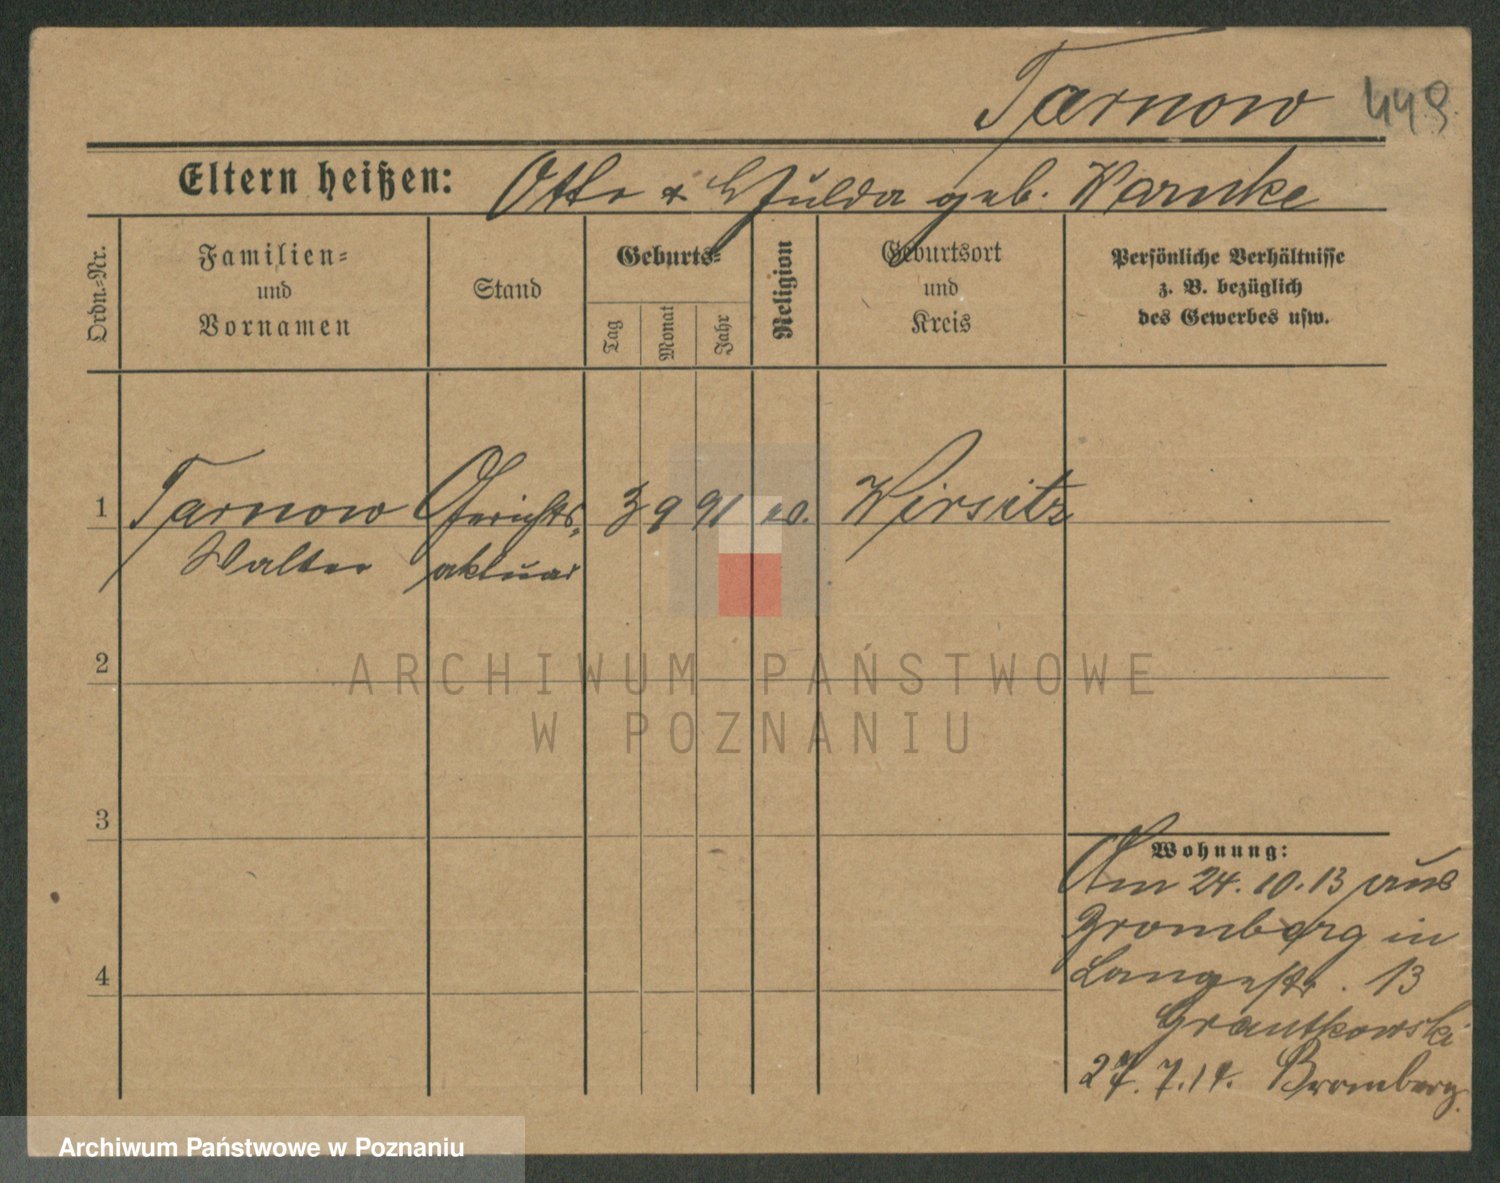 Tarnow 449
Eltern heißen: Otto & Hulda geb. Warnke
Ordn.-Nr.
Familien-
und
Vornamen
Stand
Geburts-
Tag
Monat
Jahr
Religion
Geburtsort
und
Kreis
Persönliche Verhältnisse
z. B. bezüglich
des Gewerbes usw.
1 Tarnow Gerichts- 3 9 91 ev. Wirsitz
Walter aktuar
2
ARCHIWUM PAŃSTWOWE
W POZNANIU
3
Wohnung:
Am 24.10.13 aus
Bromberg in
Langestr. 13
4
27.7.14. Bromberg.
Archiwum Państwowe w Poznaniu